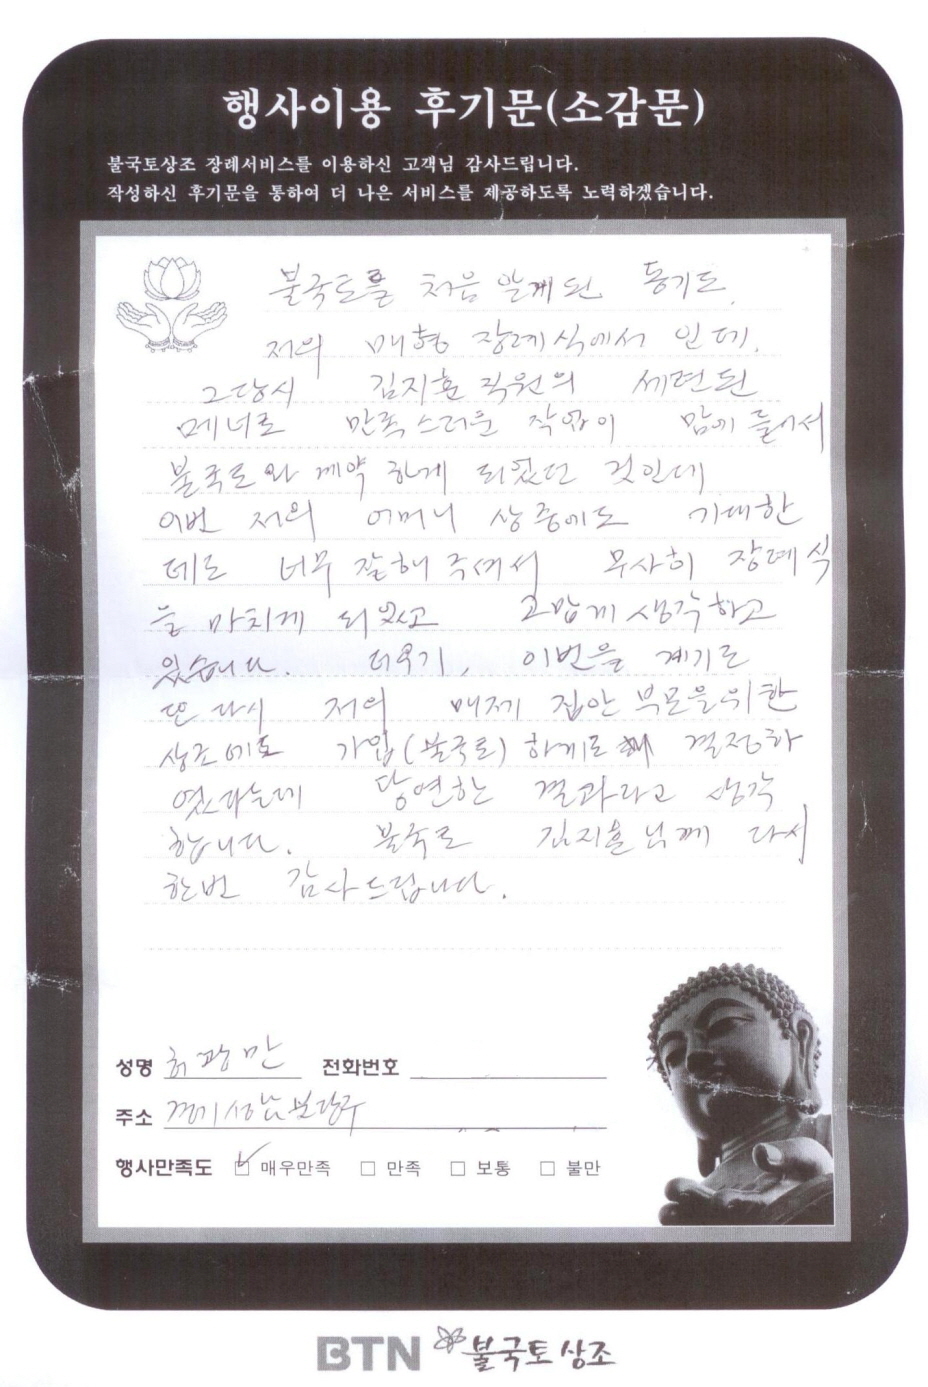 행사이용 후기문(소감문)
불국토상조 장례서비스를 이용하신 고객님 감사드립니다.
작성하신 후기문을 통하여 더 나은 서비스를 제공하도록 노력하겠습니다.
불국토를 처음 알게된 동기도
저의 매형 장례식에서 인데.
그당시 김지훈 직원의 세련된
메너로 만족스러운 작업이 맘에 들어서
불국토와 계약 하게 되었던 것인데
이번 저의 어머니 상중에도 기대한
데로 너무 잘해 주셔서 무사히 장례식
을 마치게 되었고 고맙게 생각하고
있습니다. 더욱기, 이번을 계기로
또 다시 저의 매제 집안 부모을위한
상조에도 가입(불국토) 하게로 결정하
였다는데 당연한 결과라고 생각
합니다. 불국토 김지훈님께 다시
한번 감사드립니다.
성명 허광만 전화번호
주소 경기 성남 분당구
행사만족도 ☑ 매우만족 □ 만족 □ 보통 □ 불만
BTN 불국토 상조